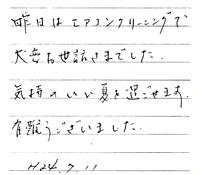 昨日はエアコンクリーニングで
大変お世話さまでした.
気持のいい夏を過ごせます.
有難うございました.
H24.7.11